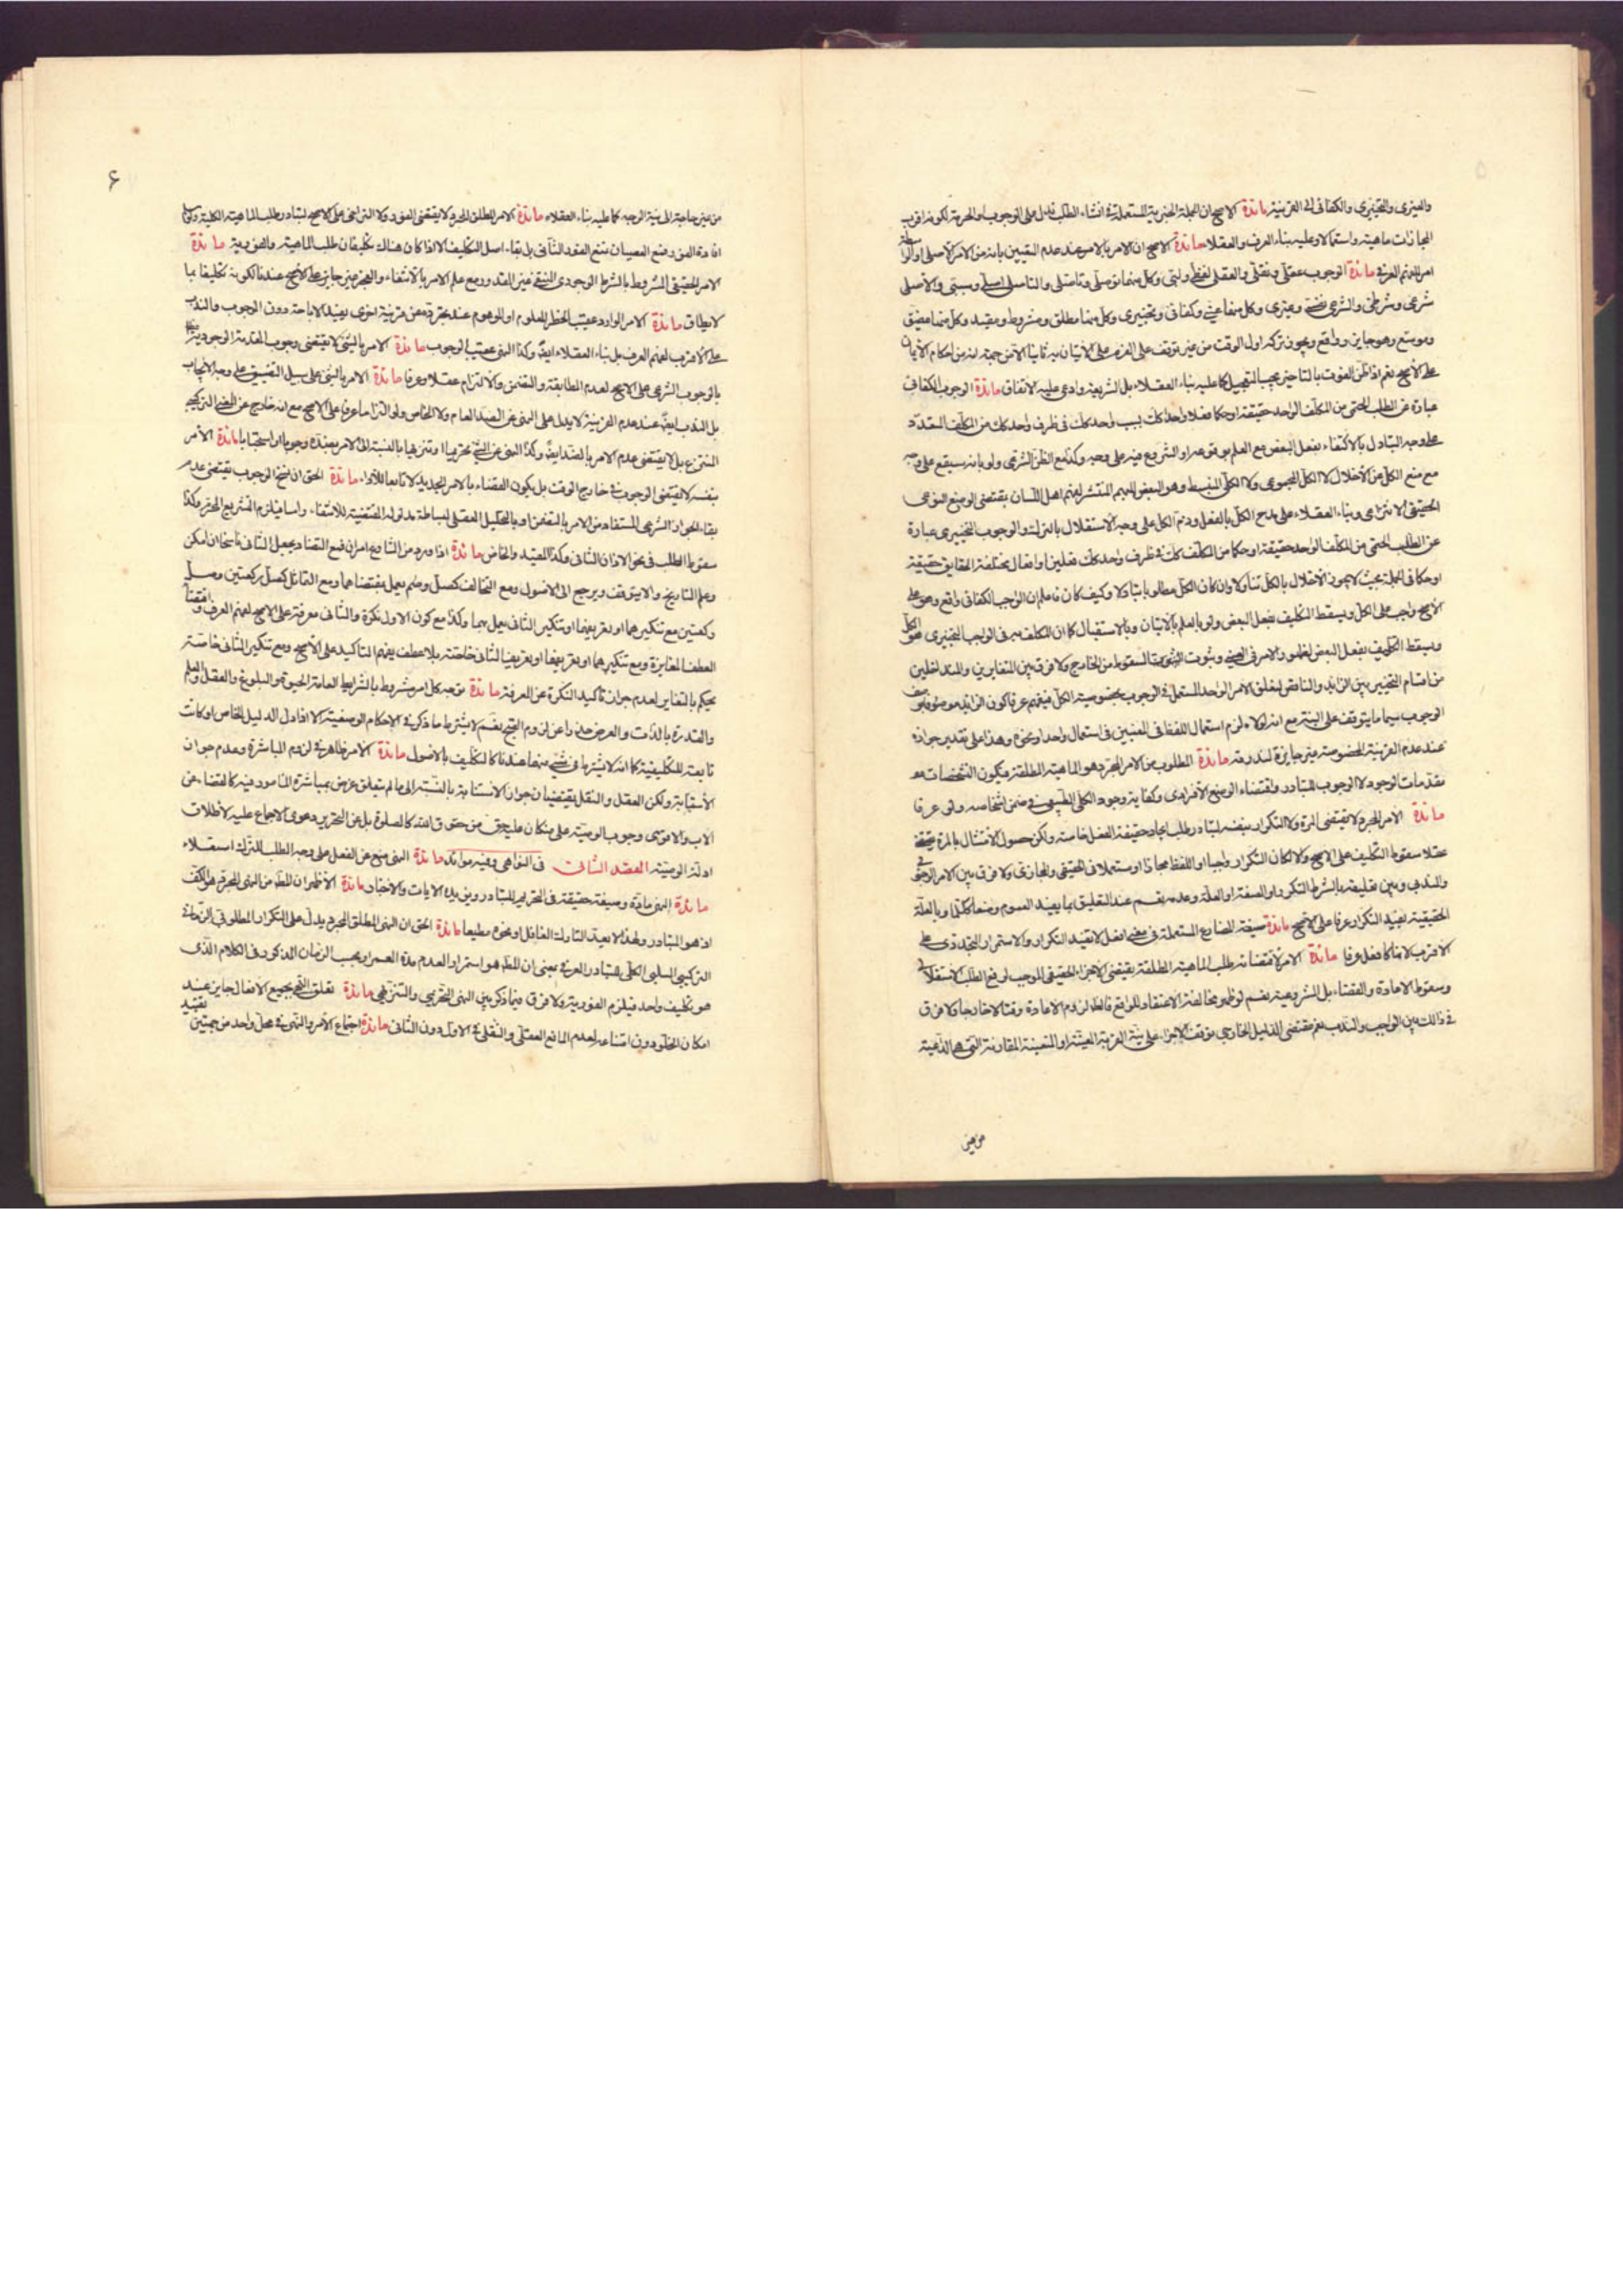 والعینی والتخییری والکفائی الی القرینة مائدة الاصح ان الجملة الخبریة المستعملة فی انشاء الطلب تدل علی الوجوب او الحرمة لکونه اقرب
المجازات ماهیة واستعمالا وعلیه بناء العرف والعقلاء مائدة الاصح ان الامر بالامر عند عدم التبیین بانه من الامر الاصلی او الواسطة
امر لفهم العرف مائدة الوجوب عقلی ونقلی والعقلی لفظی ولبی وکل منهما توصلی وتاصلی والتاصلی اصلی وتبعی والاصلی
شرعی وشرطی والشرعی نفسی وغیری وکل منها عینی وکفائی وتخییری وکل منها مطلق ومشروط ومقید وکل منها مضیق
وموسع وهو جایز وواقع ویجوز ترکه اول الوقت من غیر توقف علی العزم علی الاتیان به ثانیا الا من جهة انه من احکام الایمان
علی الاصح نعم اذا ظن الفوت بالتاخیر یجب التعجیل کما علیه بناء العقلاء بل الشریعة وادعی علیه الاتفاق مائدة الوجوب الکفائی
عبارة عن الطلب الحتمی من المکلف الواحد حقیقة او حکما فعلا واحدا کک بسبب واحد کک فی ظرف واحد کک من المکلف المتعدد
علی وجه التبادل بالاکتفاء بفعل البعض مع العلم بوقوعه او الشروع فیه علی وجهه وکذا مع الظن الشرعی ولو بانه سیقع علی وجهه
مع منع الکل عن الاخلال لا الکل المجموعی ولا الکلی المنبسط وهو البعض المبهم المنتشر لفهم اهل اللسان بمقتضی الوضع النوعی
الحقیقی الانتزاعی وبناء العقلاء علی مدح الکل بالفعل وذم الکل علی وجه الاستقلال بالترک والوجوب التخییری عبارة
عن الطلب الحتمی من المکلف الواحد حقیقة او حکما من المکلف کک فی ظرف واحد کک فعلین او افعال مختلفة الحقایق حقیقة
او حکما فی الجملة بحیث لا یجوز الاخلال بالکل تناولا وان کان الکل مطلوبا تبادلا وکیف کان فاعلم ان الواجب الکفائی واقع وهو علی
الاصح واجب علی الکل ویسقط التکلیف بفعل البعض ولو بالعلم بالاتیان وبالاستقبال کما ان المکلف به فی الواجب التخییری هو الکل
ویسقط التکلیف بفعل البعض لظهور الامر فی العینی وثبوت السقوط من الخارج ولا فرق بین المتغایرین والمتداخلین
من اقسام التخییر بین الزاید والناقص لتعلق الامر الواحد المستعمل فی الوجوب بخصوصیة الکل فیفهم عرفا کون الزاید موصوفا بوصف
الوجوب سیما ما یتوقف علی النیة مع انه لولاه لزم استعمال اللفظ فی المعنیین فی استعمال واحد او نحوه وهذا علی تقدیر جوازه
عند عدم القرینة المخصوصة غیر جایزة لندرته مائدة المطلوب من الامر المجرد هو الماهیة المطلقة فیکون التشخصات من
مقدمات الوجود لا الوجوب للتبادر واقتضاء الوضع الافرادی وکفایة وجود الکلی الطبیعی فی ضمن اشخاصه ولو عرفا
مائدة الامر المجرد لا یقتضی المرة ولا التکرار بنفسه لتبادر طلب ایجاد حقیقة الفعل خاصة ولکن حصول الامتثال بالمرة یقتضی
عقلا سقوط التکلیف علی الاصح ولا لکان التکرار واجبا او اللفظ مجازا او مستعملا فی الحقیقی والمجازی ولا فرق بین الامر الوجوبی
والندبی وبین تعلیقه بالشرط المتکرر او الصفة او العلة وعدمه نعم عند التعلیق بما یفید العموم وضعا ککلما وبالعلة
الحقیقیة یفید التکرار عرفا علی الاصح مائدة صیغة المضارع المستعملة فی معنی افعل لا تفید التکرار والاستمرار التجددی علی
الاقرب لانها کافعل عرفا مائدة الامر لاقتضائه طلب الماهیة المطلقة یقتضی الاجزاء الحقیقی الموجب لرفع الطلب الاستقلالی
وسقوط الاعادة والقضاء بل الشرعیة نعم لو ظهر مخالفة الاعتقاد للواقع فالظ لزوم الاعادة وقتا لا خارجا ولا فرق
فی ذالک بین الواجب والندب نعم مقتضی الدلیل الخارجی توقف الاجزاء علی نیة القربة المعینة او المتعینة المقارنة التی هی الداعیة
من غیر
۶
من غیر حاجة الی نیة الوجه کما علیه بناء العقلاء مائدة الامر المطلق المجرد لا یقتضی الفور ولا التراخی علی الاصح لتبادر طلب الماهیة الکلیة
افادة الفور وقع العصیان تتبع الفور الثانی بل بقاء اصل التکلیف الا اذا کان هناک تکلیفان طلب الماهیة والفوریة مائدة
الامر الحقیقی المشروط بالشرط الوجودی المنتفی غیر المقدور مع علم الامر بالانتفاء والعجز غیر جایز علی الاصح عندنا لکونه تکلیفا بما
لا یطاق مائدة الامر الوارد عقیب الحظر المعلوم او الموهوم عند تجرده عن قرینة اخری یفید الاباحة دون الوجوب والندب
علی الاقرب لفهم العرف بل بناء العقلاء ایضا وکذا النهی عقیب الوجوب مائدة الامر بالشئ لا یقتضی وجوب المقدمة الوجودیة
بالوجوب الشرعی علی الاصح لعدم المطابقة والتضمن والالتزام عقلا وعرفا مائدة الامر بالشئ علی سبیل التضییق علی وجه الایجاب
بل الندب ایضا عند عدم القرینة لا یدل علی النهی عن الضد العام ولا الخاص ولو التزاما عرفا علی الاصح مع انه خارج عن المعنی الترکیبی
المنتزع بل لا یقتضی عدم الامر بالضد ایضا وکذا النهی عن الشئ تحریما او تنزیها بالنسبة الی الامر بضده وجوبا او استحبابا مائدة الامر
بنفسه لا یقتضی الوجوب فی خارج الوقت بل یکون القضاء بالامر الجدید لا تابعا للاداء مائدة الحق ان نسخ الوجوب یقتضی عدم
بقاء الجواز الشرعی المستفاد من الامر بالتضمن او بالتحلیل العقلی لبساطة مدلوله المقتضیة للانتفاء راسا فیلزم التشریع المحرم وکذا
سقوط الطلب فی نحو الاذان الثانی وکذا المقید والخاص مائدة اذا ورد من الشارع امران فمع التضاد یجعل الثانی ناسخا ان امکن
وعلم التاریخ والا یتوقف ویرجع الی الاصول ومع التخالف کصل وصم یعمل بمقتضاهما ومع التماثل کصل رکعتین وصل
رکعتین مع تنکیرهما او تعریفهما او تنکیر الثانی یعمل بهما وکذا مع کون الاول نکرة والثانی معرفة علی الاصح لفهم العرف واقتضاء
العطف المغایرة ومع تنکیرهما او تعریفهما او تعریف الثانی خاصة بلا عطف یفهم التاکید علی الاصح ومع تنکیر الثانی خاصة
یحکم بالتغایر لعدم جواز تاکید النکرة عن المعرفة مائدة توجه کل امر مشروط بالشرایط العامة الحیوة والبلوغ والعقل والعلم
والقدرة بالذات والعرض حذرا عن لزوم القبح نعم لا یشترط ما ذکر فی الاحکام الوضعیة الا اذا دل الدلیل الخاص او کانت
تابعة للتکلیفیة کما انه لا یشترط فی شئ منها عندنا کالتکلیف بالاصول مائدة الامر ظاهر فی لزوم المباشرة وعدم جواز
الاستنابة ولکن العقل والنقل یقتضیان جواز الاستنابة بالنسبة الی ما لم یتعلق غرض بمباشرة المامور فیه کالقضاء عن
الاب والاقوی وجوب الوصیة علی من کان علیه حق من حقوق الله کالصلوة بل عن التحریر دعوی الاجماع علیه لاطلاق
ادلة الوصیة العقد الثانی فی النواهی وفیه موائد مائدة النهی منع عن الفعل علی وجه الطلب للترک استعلاء
مائدة النهی مادة وصیغة حقیقة فی التحریم للتبادر وبنور من الایات والاخبار مائدة الاظهر ان المطلوب من النهی المجرد هو الکف
اذ هو المتبادر ولهذا لا یعد التارک الغافل او نحوه مطیعا مائدة الحق ان النهی المطلق المجرد یدل علی التکرار المطلق فی الازمنة
الترکیبی السلبی الکلی للتبادر العرفی بمعنی ان المطلوب هو استمرار العدم مدة العمر او بحسب الزمان المذکور فی الکلام الذی
هو تکلیف واحد فیلزم الفوریة ولا فرق فیما ذکر بین النهی التحریمی والتنزیهی مائدة تعلق النهی بجمیع الافعال جایز عند
امکان الخلو دون امتناعه لعدم المانع العقلی والنقلی فی الاول دون الثانی مائدة اجتماع الامر والنهی فی محل واحد من جهتین